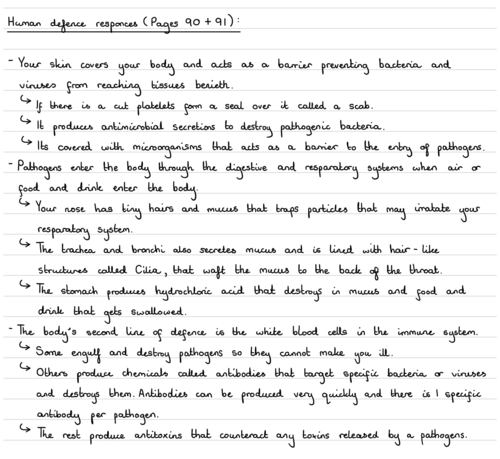 Human defence responces (Pages 90 + 91):
- Your skin covers your body and acts as a barrier preventing bacteria and
viruses from reaching tissues benieth.
↳ If there is a cut platelets form a seal over it called a scab.
↳ It produces antimicrobial secretions to destroy pathogenic bacteria.
↳ Its covered with microorganisms that acts as a barrier to the entry of pathogens.
- Pathogens enter the body through the digestive and resparatory systems when air or
food and drink enter the body.
↳ Your nose has tiny hairs and mucus that traps particles that may irratate your
resparatory system.
↳ The trachea and bronchi also secretes mucus and is lined with hair-like
structures called Cilia, that waft the mucus to the back of the throat.
↳ The stomach produces hydrochloric acid that destroys in mucus and food and
drink that gets swallowed.
- The body's second line of defence is the white blood cells in the immune system.
↳ Some engulf and destroy pathogens so they cannot make you ill.
↳ Others produce chemicals called antibodies that target specific bacteria or viruses
and destroys them. Antibodies can be produced very quickly and there is 1 specific
antibody per pathogen.
↳ The rest produce antitoxins that counteract any toxins released by a pathogens.